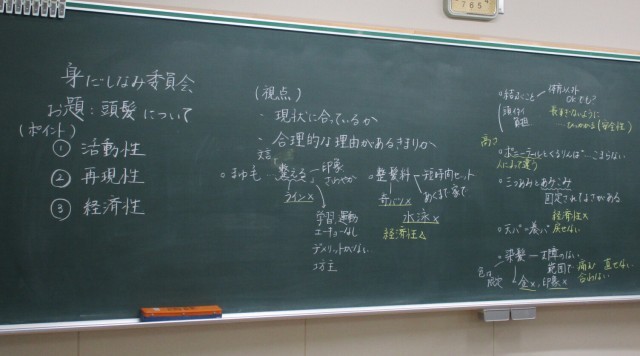 身だしなみ委員会
お題：頭髪について
(ポイント)
① 活動性
② 再現性
③ 経済性
(視点)
・現状に合っているか
・合理的な理由があるきまりか
文言
○まゆも 整える 印象
さわやか
ライン×
学習、運動
デメリットがない
坊主
○整髪料 短時間セット
あくまで家で
奇パツ×
水泳×
経済性△
○結ぶこと 体育以外
OKでも?
頭イタイ
負担
長すぎないように
ひっかかる(安全性)
高さ
○ポニーテールもくるりんぱ こまらない
人によって違う
○三つあみとあみこみ
固定されてなさがある
経済性×
○天パ 戻せない
○染髪 支障のない
範囲で
痛む 直せない
合わない
色は
金×、印象×
765